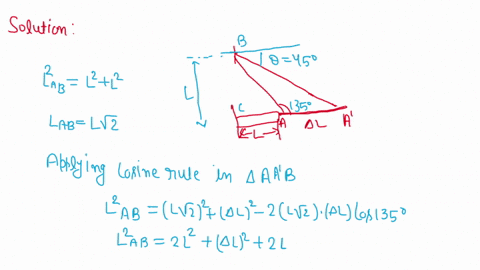 Solution:
B
θ=45°
L²AB = L²+L²
L
LAB = L√2
C
135°
L
A
ΔL
A'
Applying Cosine rule in ΔAA'B
L²AB = (L√2)²+(ΔL)²-2(L√2).(ΔL) Cos135°
L²AB = 2L²+(ΔL)²+2L